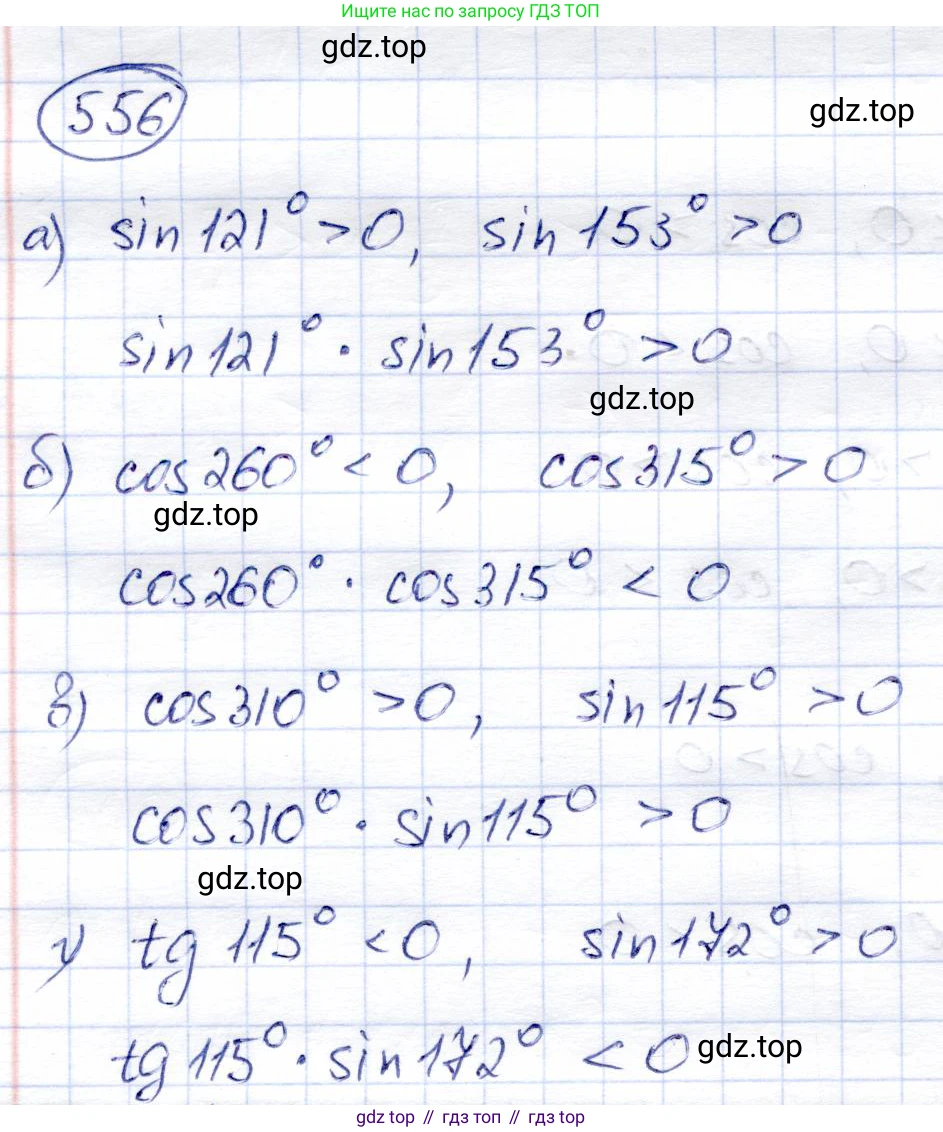 Ищите нас по запросу ГДЗ ТОП
gdz.top
556
gdz.top
а) sin 121° > 0, sin 153° > 0
sin 121° · sin 153° > 0
gdz.top
б) cos 260° < 0, cos 315° > 0
gdz.top
cos 260° · cos 315° < 0
в) cos 310° > 0, sin 115° > 0
cos 310° · sin 115° > 0
gdz.top
г) tg 115° < 0, sin 172° > 0
tg 115° · sin 172° < 0
gdz.top
gdz top // гдз топ // гдз top